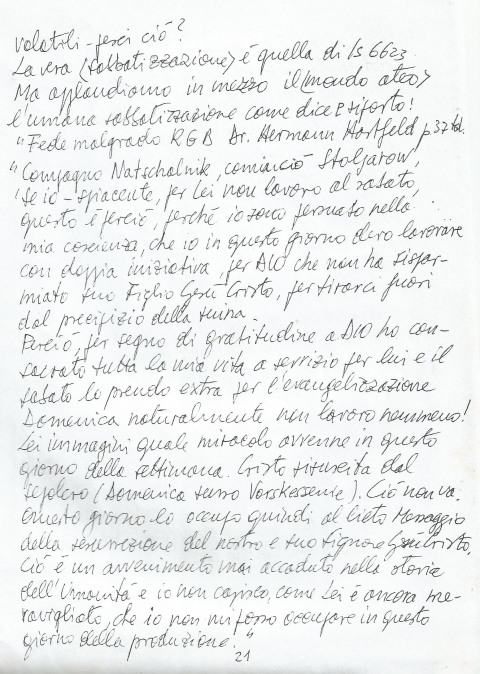 volatili - perciò ciò?
La vera (sabbatizzazione) è quella di Is 66 23
Ma applaudiamo in mezzo il (mondo ateo)
l'umana sabbatizzazione come dice
"Fede malgrado KGB Dr. Hermann Hartfeld p 32
"Compagno Natschalnik, cominciò Stoljarow,
se io - spiacente, per Lei non lavoro al sabato,
questo è perciò, perché io sono persuaso nella
mia coscienza, che io in questo giorno devo lavorare
con doppia iniziativa, per DIO che non ha rispar-
miato suo Figlio Gesù Cristo, per tirarci fuori
dal precipizio della ruina.
Perciò, per segno di gratitudine a DIO ho con-
sacrato tutta la mia vita a servizio per lui e il
sabato lo prendo extra per l'evangelizzazione
Domenica naturalmente non lavoro nemmeno!
Lei immagini quale miracolo avvenne in questo
giorno della settimana. Cristo risuscita dal
sepolcro (Domenica russo Voskessenie). Ciò non va.
Questo giorno lo occupo quindi al lieto Messaggio
della resurrezione del nostro e suo Signore Gesù Cristo,
Ciò è un avvenimento mai accaduto nella storia
dell'Umanità e io non capisco, come Lei è ancora me-
ravigliato, che io non mi posso occupare in questo
giorno della produzione."
21